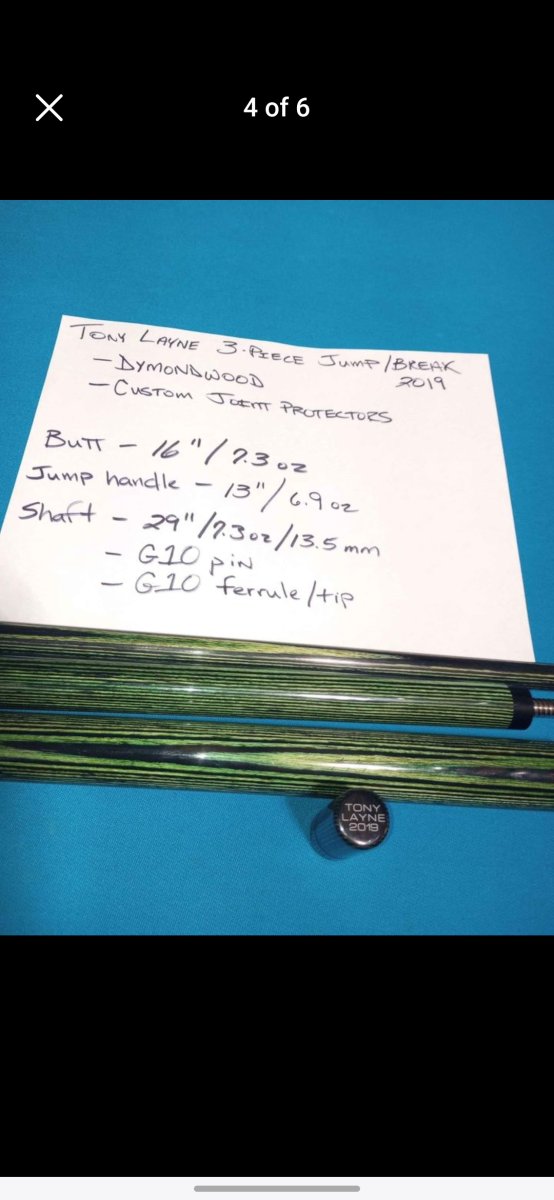 4 of 6
TONY LAYNE 3-PIECE JUMP/BREAK
2019
- DYMONDWOOD
- CUSTOM JOINT PROTECTORS
BUTT - 16"/7.3 oz
Jump handle - 13"/6.9 oz
Shaft - 29"/7.3oz/13.5mm
- G10 pin
- G10 ferrule/tip
TONY
LAYNE
2019